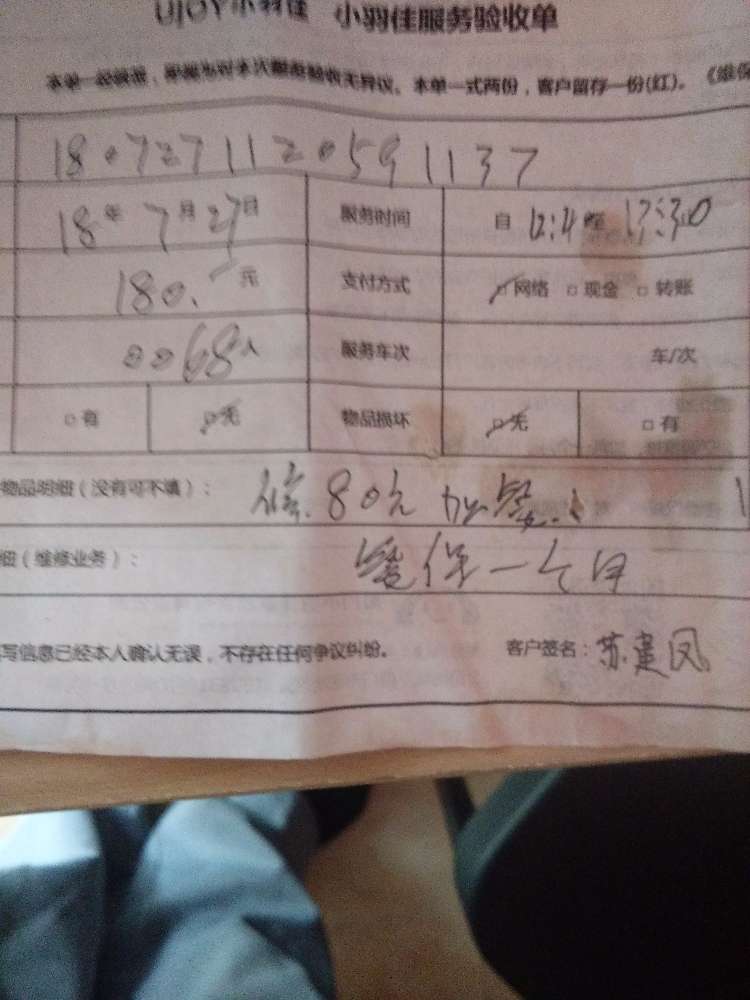 UJOY小羽佳 小羽佳服务验收单
本单一经签署，即视为对本次服务验收无异议。本单一式两份，客户留存一份(红)。《维保
1807271120591137
18年7月27日 服务时间 自 12:4 至 17:30
180. 元 支付方式 网络 现金 转账
0068 服务车次 车/次
有 无 物品损坏 无 有
物品明细（没有可不填）： 修 80元
细（维修业务）： 保一个月
写信息已经本人确认无误，不存在任何争议纠纷。 客户签名：苏建凤